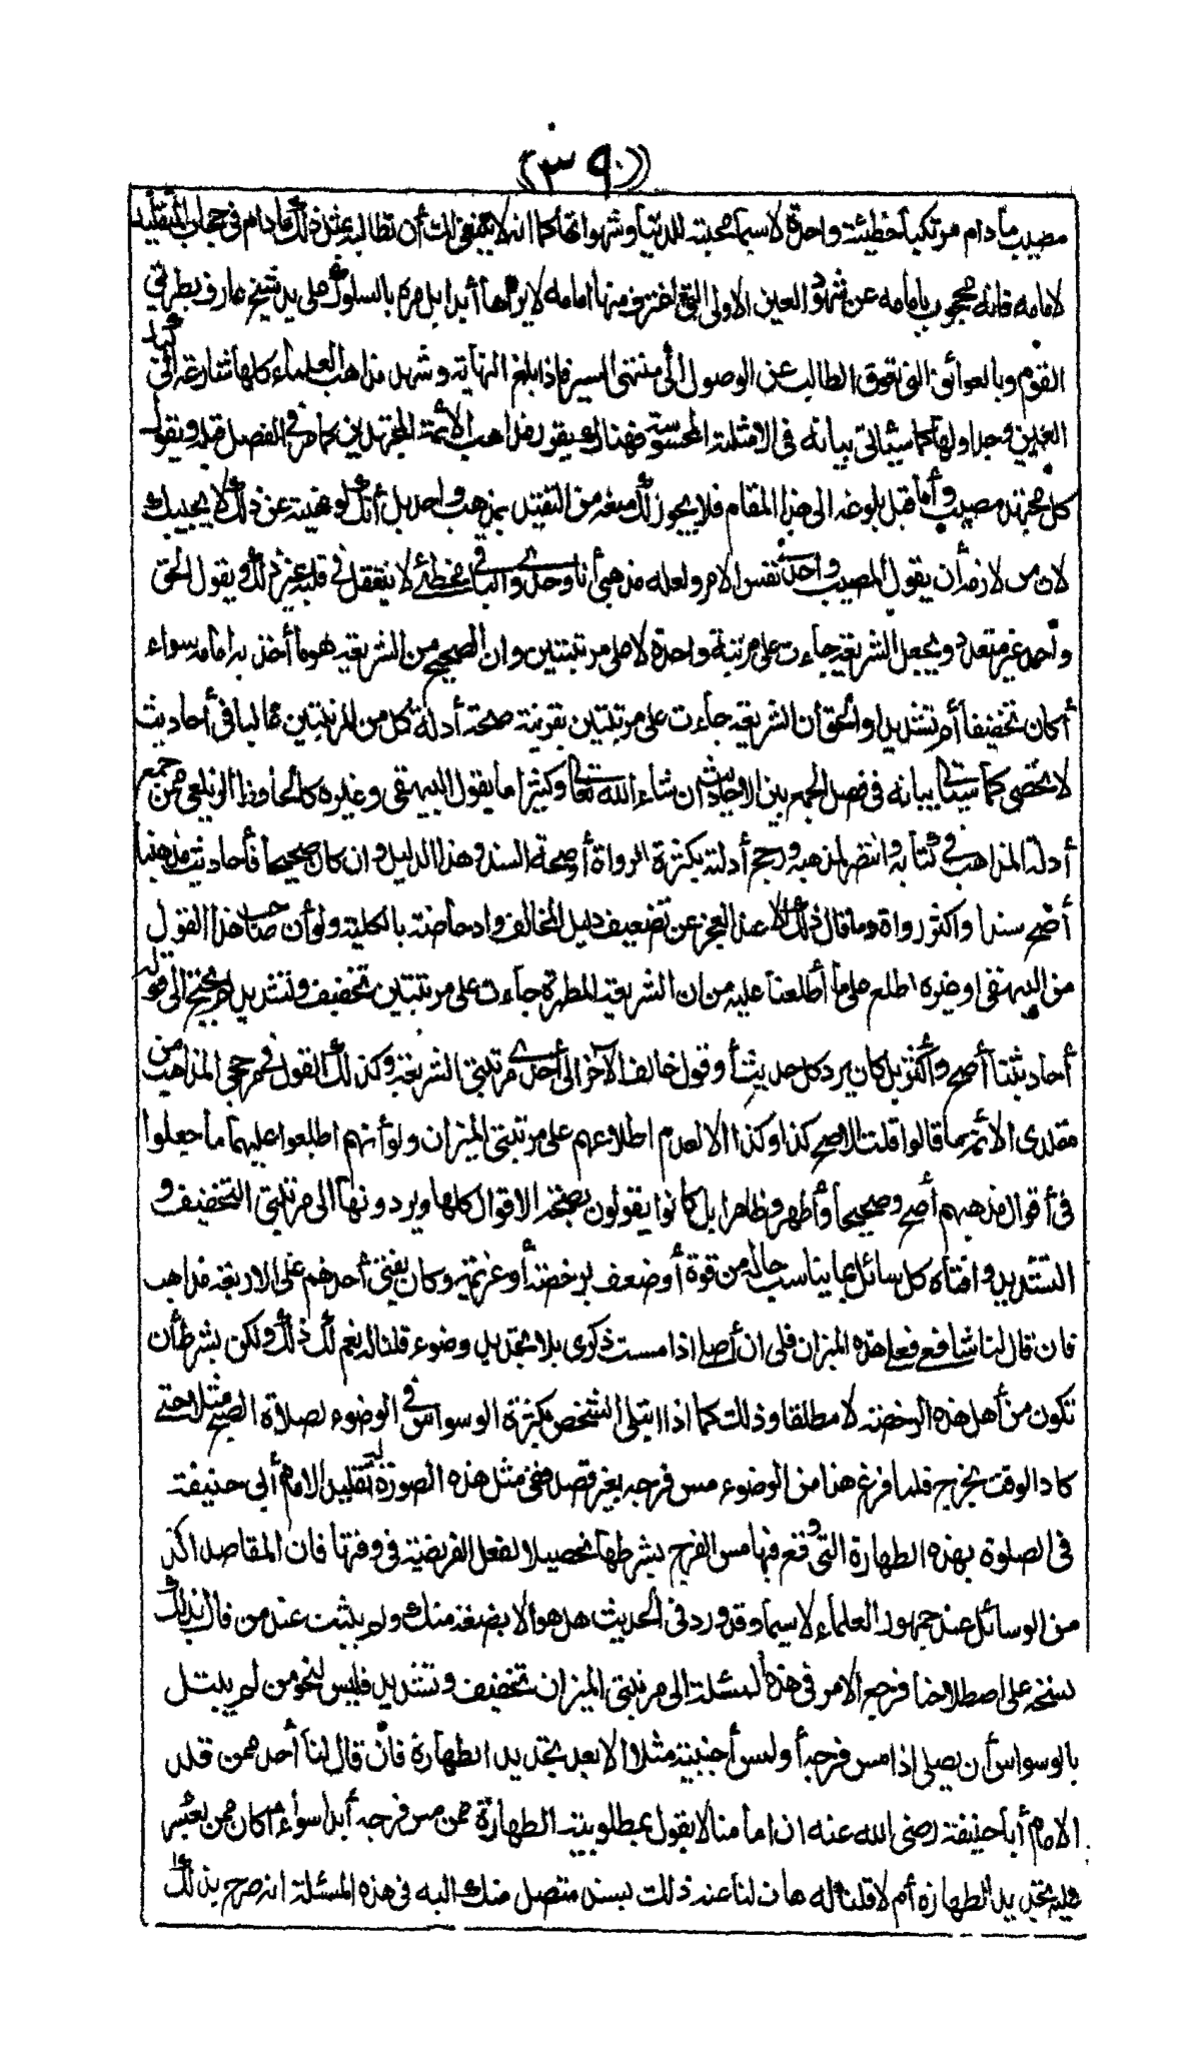 (٣٩)
مصيب ما دام مرتكبا خطيئة واحدة لا سيما محبته للدنيا وشهواتها كما انه لا ينبغى لك أن تطالبه بمثل ذلك ما دام فى حجاب التقليد
لامامه فانه محجوب بامامه عن شهود العين الاولى التى اغترف منها امامه لا يراها أبدا بل مره بالسلوك على يد شيخ عارف بطريق
القوم وبالعوائق التى تعوق الطالب عن الوصول الى منتهى السير فاذا بلغ النهاية وشهد مذاهب العلماء كلها شارعة الى
العين وجداولها كما سيأتى بيانه فى الامثلة المحسوسة فهناك يقرر مذاهب الأئمة المجتهدين كما مر فى الفصل قبله ويقول
كل مجتهد مصيب وأما قبل بلوغه الى هذا المقام فلا يجوز لك منعه من التقيد بمذهب واحد بل أنك لو نهيته عن ذلك لا يجيبك
لان من لازمه أن يقول المصيب واحد فى نفس الامر ولعله مذهبى أنا وحدى والباقى مخطئ لا يتعقل فى قلبه غير ذلك ويقول الحق
واحد غير متعدد ويجعل الشريعة جاءت على مرتبة واحدة لا على مرتبتين وان الصحيح من الشريعة هو ما أخذ به امامه سواء
أكان تخفيفا أم تشديدا والحق أن الشريعة جاءت على مرتبتين بقرينة صحة أدلة كل من المرتبتين غالبا فى أحاديث
لا تحصى كما سيأتى بيانه فى فصل الجمع بين الاحاديث ان شاء الله تعالى وكثيرا ما يقول البيهقى وغيره كالحافظ الزيلعى ممن جمع
أدلة المذاهب فى كتابه وانتصر لمذهبه ورجح أدلته بكثرة الرواة أو صحة السند وهذا الدليل وان كان صحيحا فأحاديث مذهبنا
أصح سندا واكثر رواة وما قال ذلك الا عند العجز عن تضعيف دليل المخالف وادحاضه بالكلية ولو أن صاحب هذا القول
من البيهقى او غيره اطلع على ما أطلعنا عليه من ان الشريعة المطهرة جاءت على مرتبتين تخفيف وتشديد لم يحتج الى قوله
أحاديثنا أصح وأكثر بل كان يرد كل حديث أو قول خالف الآخر الى أحدى مرتبتى الشريعة وكذلك القول فى مرجحى المذاهب من
مقلدى الائمة ما قالوا قلت الاصح كذا وكذا الا لعدم اطلاعهم على مرتبتى الميزان ولو أنهم اطلعوا عليهما ما جعلوا
فى أقوال مذهبهم أصح وصحيحا وأظهر وظاهرا بل كانوا يقولون بصحة الاقوال كلها ويردونها الى مرتبتى التخفيف و
التشديد وافتاه كل سائل بما يناسب حاله من قوة أو ضعف برخصة أو عزيمة وكان يفتى أحدهم على الاربعة مذاهب
فان قال لنا شافعى فعلى هذه الميزان فلى ان أصلى اذا مست ذكرى بلا تجديد وضوء قلنا له نعم لك ذلك ولكن بشرط أن
تكون من أهل هذه الرخصة لا مطلقا وذلك كما اذا ابتلى الشخص بكثرة الوسواس فى الوضوء لصلاة الصبح مثلا حتى
كاد الوقت يخرج فلما فرغ هذا من الوضوء مس فرجه بغير قصد فى مثل هذه الصورة له تقليد الامام أبى حنيفة
فى الصلوة بهذه الطهارة التى وقع فيها مس الفرج بشرطها تحصيلا لفعل الفريضة فى وقتها فان المقاصد اكد
من الوسائل عند جمهور العلماء لا سيما وقد ورد فى الحديث هل هو الا بضعة منك ولم يثبت عند من قال بذلك
نسخه على اصطلاحنا فرجع الامر فى هذه المسئلة الى مرتبتى الميزان تخفيف وتشديد فليس لنحو من لم يبتل
بالوسواس أن يصلى اذا مس فرجه أو لمس أجنبية مثلا الا بعد تجديد الطهارة فان قال لنا أحد ممن قلد
الامام أبا حنيفة رضى الله عنه ان امامنا لا يقول بمطلوبية الطهارة ممن مس فرجه أبدا سواء أكان ممن يعسر
عليه تجديد الطهارة أم لا قلنا له هات لنا عنه ذلك بسند متصل منك اليه فى هذه المسئلة انه صرح بذلك